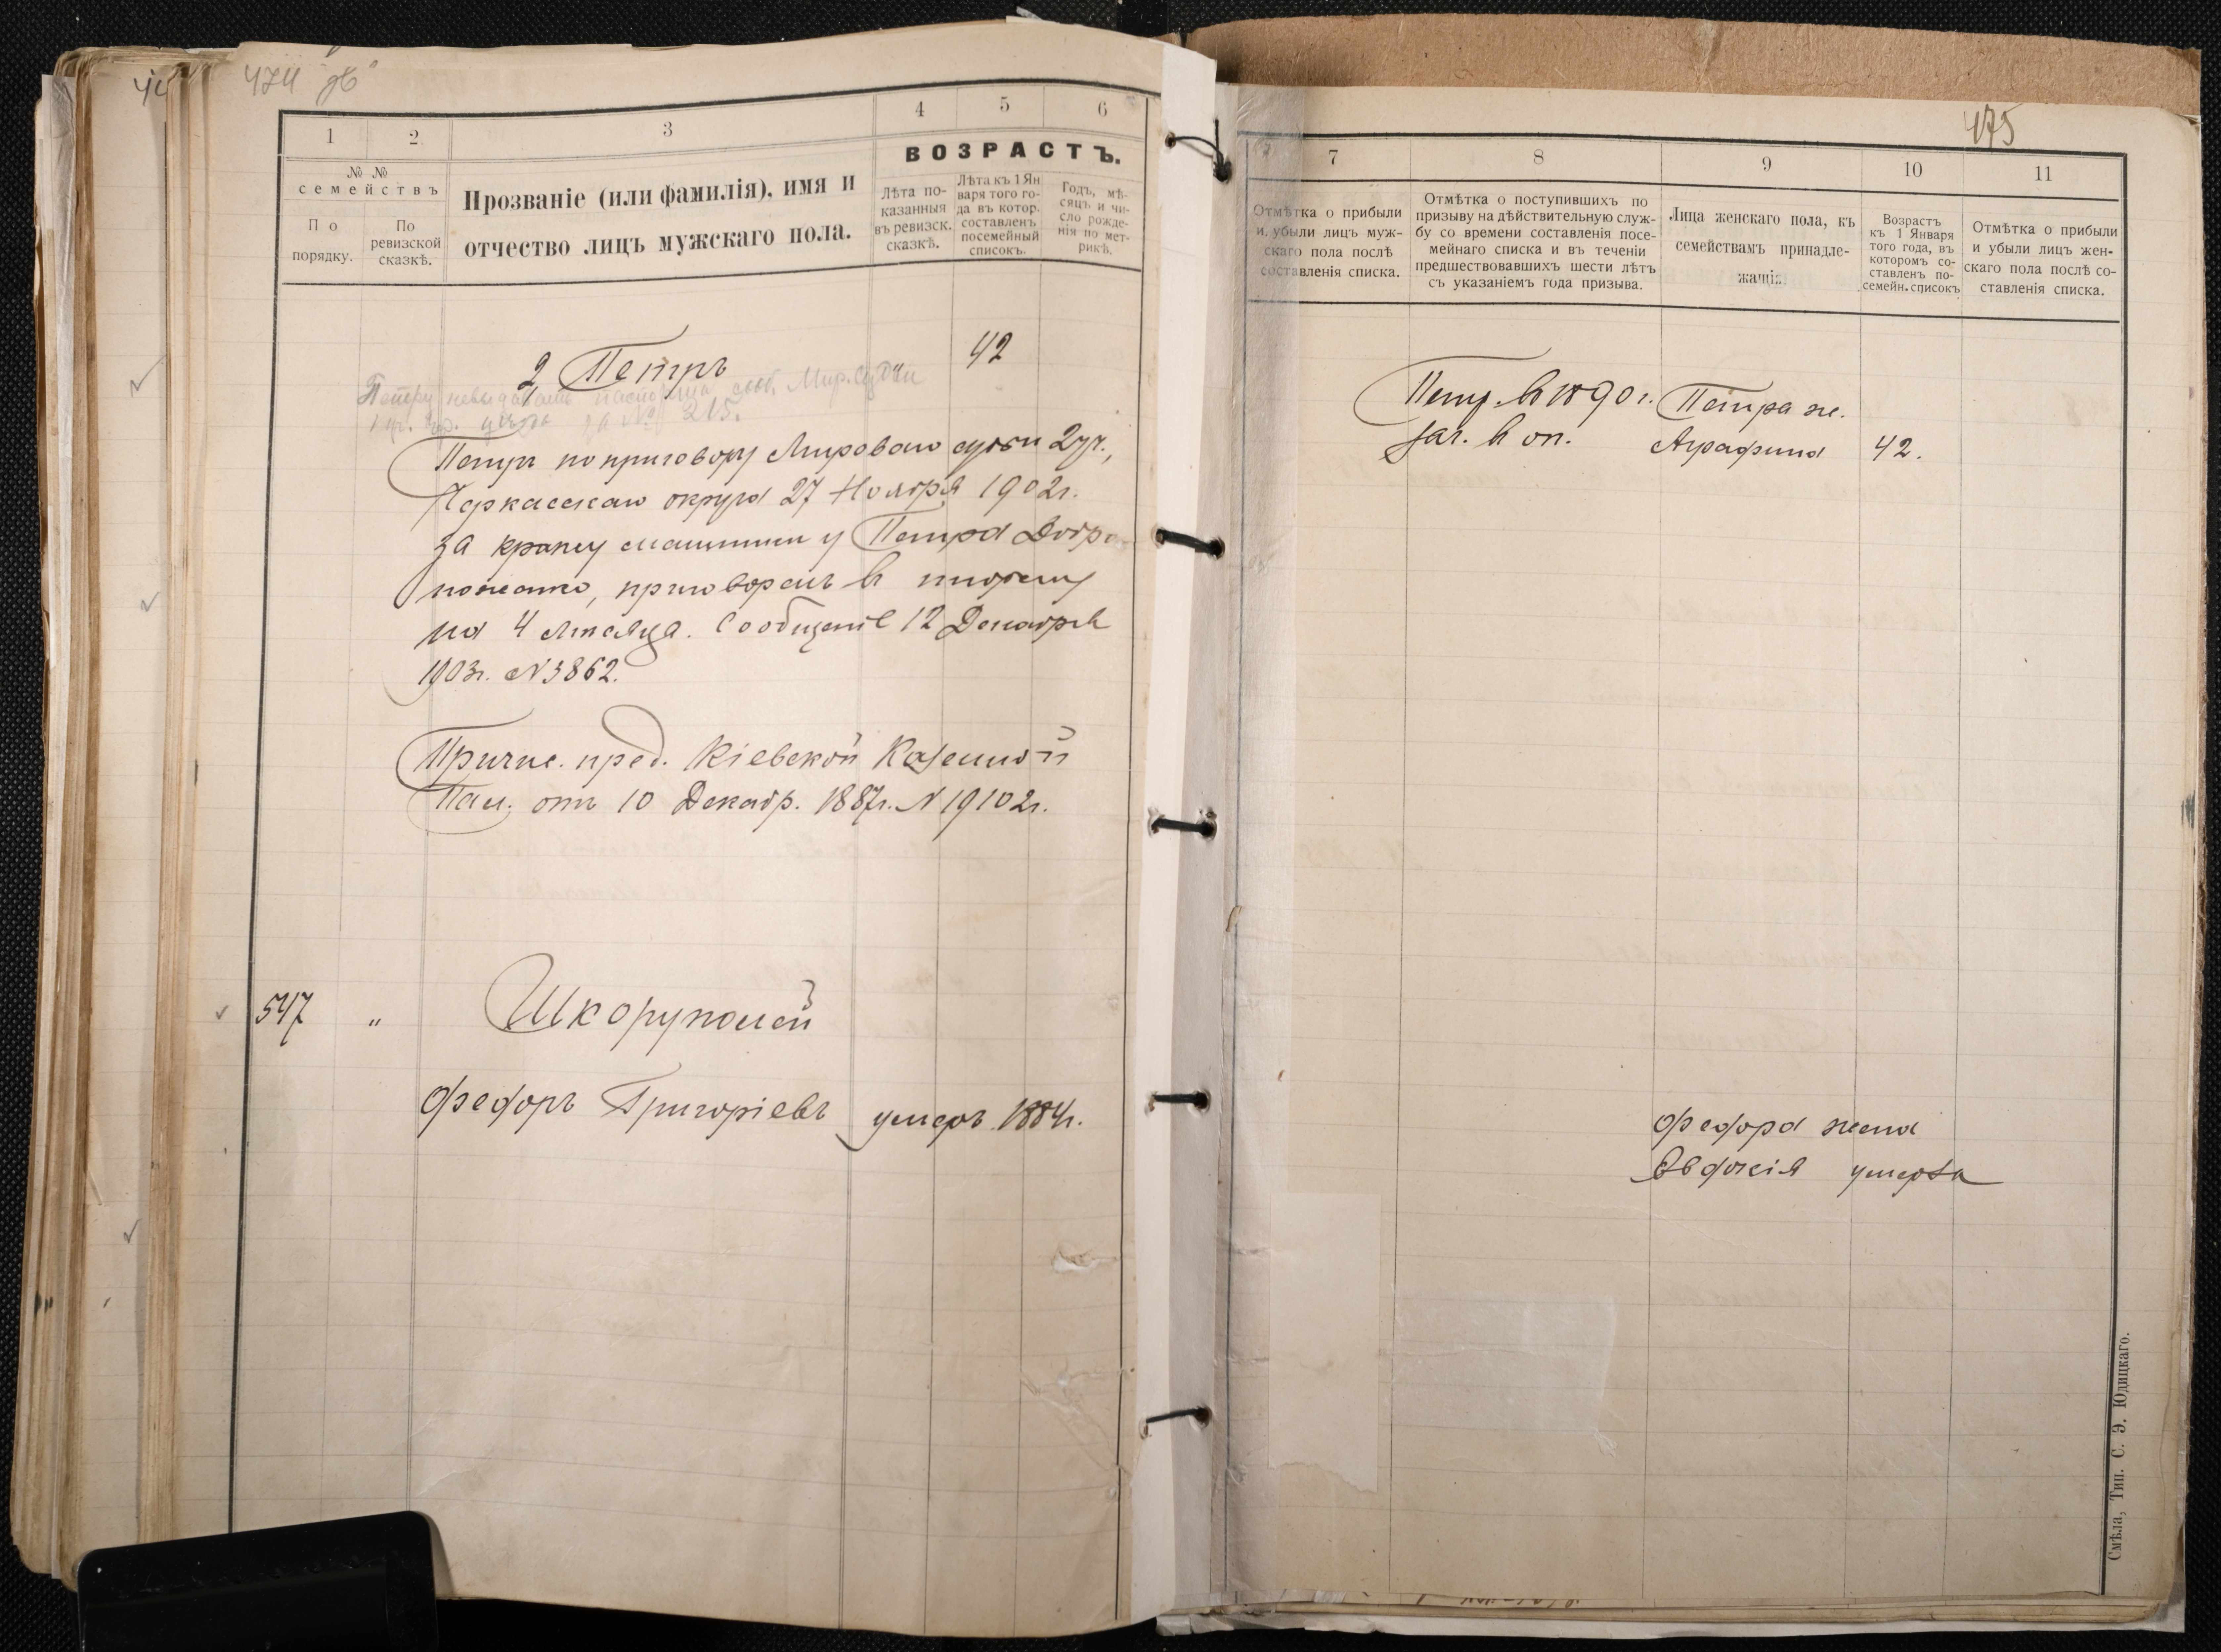 474 об
1
2
3
4
5
6
№ №
семействъ
По
порядку.
По
ревизской
сказкѣ.
Прозваніе (или фамилія), имя и
отчество лицъ мужскаго пола.
ВОЗРАСТЪ.
Лѣта по-
казанныя
въ ревизск.
сказкѣ.
Лѣта къ 1 Ян
варя того го-
да въ котор.
составленъ
посемейный
списокъ.
Годъ, мѣ-
сяцъ и чи-
сло рожде-
нія по мет-
рикѣ.
2 Петръ 42
Петру невыдавать паспорта сооб. Мир. Судьи
№ 215.
Петръ по приговору Мирового судьи 2 уч.,
Черкасскаго округа 27 Ноября 1902г.
за кражу машины у Петра
приговоренъ в тюрьму
на 4 мѣсяца. Сообщеніе 12 Декабря
1903г. N 3862.
Причис. пред. Кіевской Казенной
Пал. отъ 10 Декабр. 1887г. N 19102г.
547 "
Федоръ Григоріевъ умеръ 1884г.
475
7
8
9
10
11
Отмѣтка о прибыли
и убыли лицъ муж-
скаго пола послѣ
составленія списка.
Отмѣтка о поступившихъ по
призыву на дѣйствительную служ-
бу со времени составленія посе-
мейнаго списка и въ теченіи
предшествовавшихъ шести лѣтъ
съ указаніемъ года призыва.
Лица женскаго пола, къ
семействамъ принадле-
жащія.
Возрастъ
къ 1 Января
того года, въ
которомъ со-
ставленъ по-
семейн. списокъ
Отмѣтка о прибыли
и убыли лицъ жен-
скаго пола послѣ со-
ставленія списка.
Петр. в 1890г.
зач. в оп.
Петра ж.
Аграфина 42.
Федора жена
Евдокія умерла
Смѣла, Тип. С. Э. Юдицкаго.